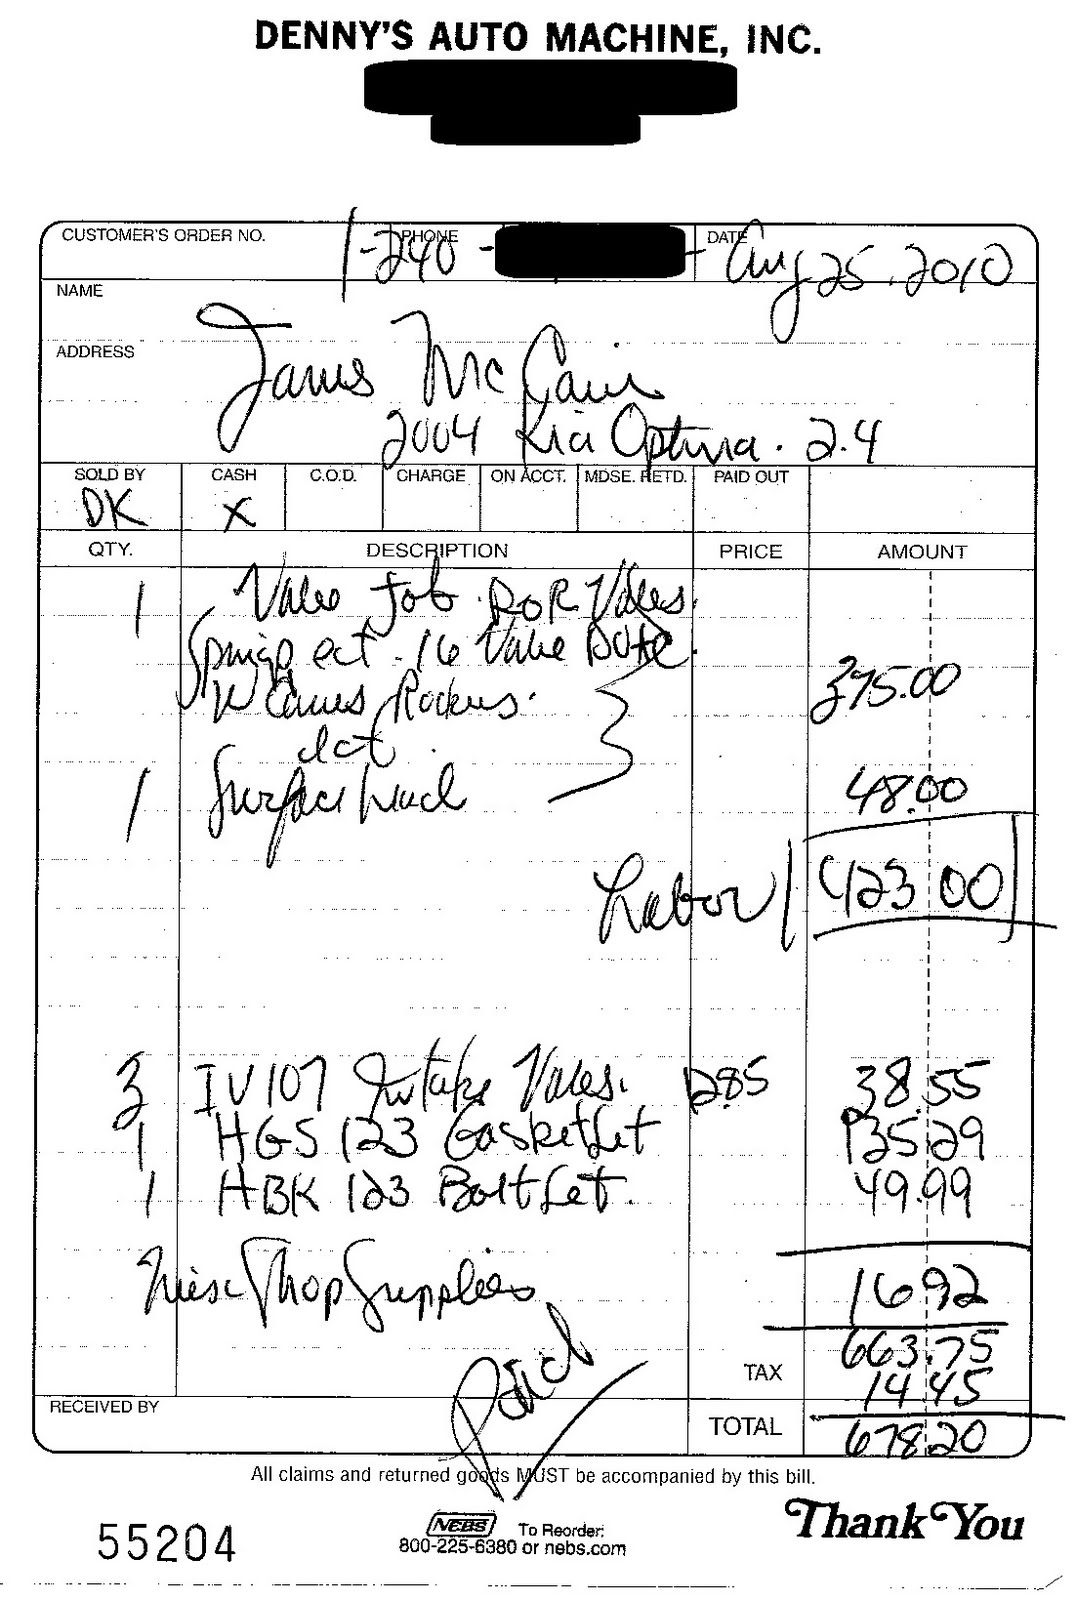 DENNY'S AUTO MACHINE, INC.
CUSTOMER'S ORDER NO. PHONE DATE
1-240 - - Aug 25, 2010
NAME
ADDRESS
James McCain
2004 Kia Optima. 2.4
SOLD BY CASH C.O.D. CHARGE ON ACCT. MDSE. RETD. PAID OUT
DK X
QTY. DESCRIPTION PRICE AMOUNT
1 Valve Job. ROR Valves.
Springs ect. 16 Valve DOHC.
W Cams Rockers. 375.00
ect
1 Surface head 48.00
Labor 423 00
3 IV107 Intake Valves. 12.85 38.55
1 HGS 123 Gasket Set 135.29
1 HBK 123 Bolt Set. 49.99
Misc Shop Supplies 16 92
663.75
TAX 14.45
Paid
RECEIVED BY TOTAL 678.20
All claims and returned goods MUST be accompanied by this bill.
55204 NEBS To Reorder: 800-225-6380 or nebs.com Thank You